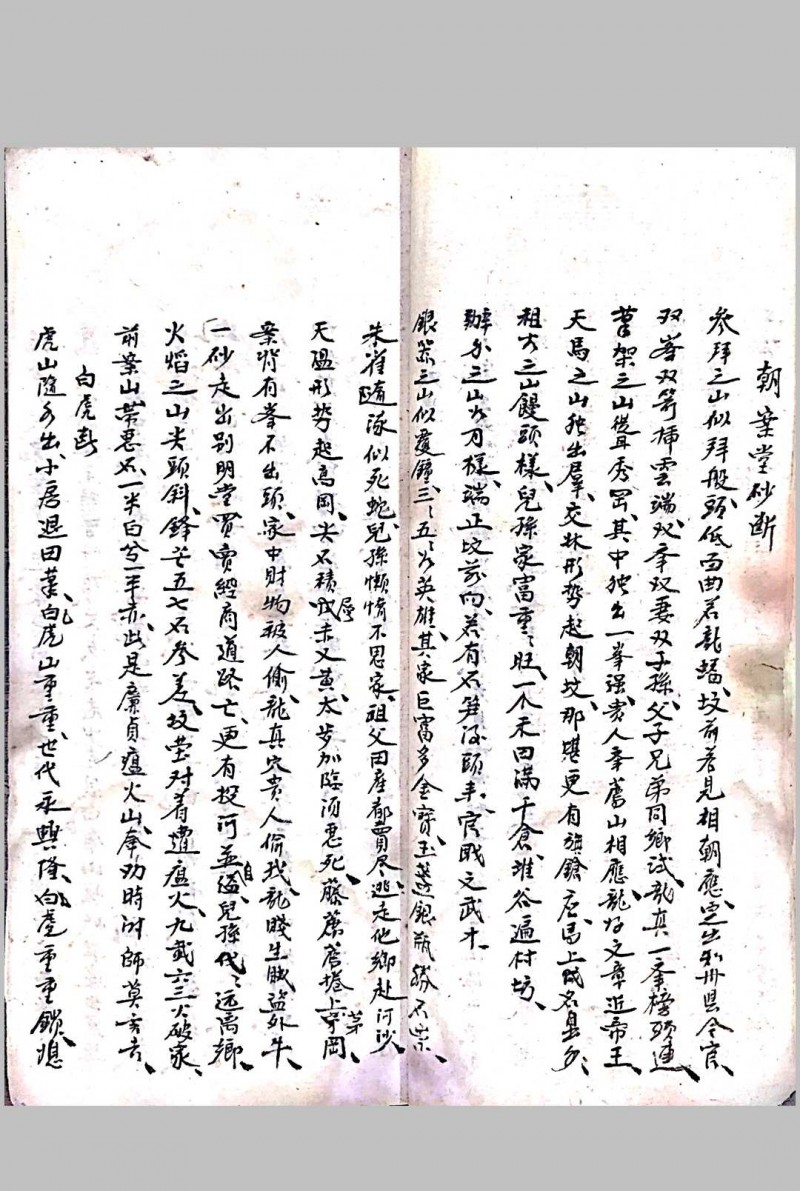 朝案堂砂断
参拜之山似拜般、头低而曲若龍蟠、坟前若見相朝應、定出知州县令官、
双峯双笋插雲端、双奉双妻双子孫、父子兄弟同鄉試、龍真一奉榜頭通、
筆架之山聳秀罡、其中独出一峯强、貴人奉旧山相應、龍好文章近帝王、
天馬之山独出群、交牀形势起朝坟、那堪更有旗鎗应、馬上成名县分、
祖大之山饅頭樣、兒孫家富重〻旺、一个禾田满千倉、堆谷遍村坊、
辦分之山如刀樣、端正坟前向、若有石笋頭丰、官职文武才
銀瓶之山似覆鐘、三〻五〻火英雄、其家巨富多金寶、玉盞銀瓶勝石崇、
朱雀隨流似死蛇、兒孫懒惰不思家、祖父田産都賣尽、逃走他鄉赴河沙、
天瘟形势起高岡、尖石積屑赤又黄、太步加臨須惡死、藤蘿蓋塔上茅岡、
案背有峯不出頭、家中財物被人偷、龍真穴貴人偷我、龍賤生賊盗外牛、
一砂走出别明堂、買賣經商道路亡、更有投河并自縊、兒孫代〻远离鄉、
火焰之山尖頭斜、鋒芒五七石参差、坟堂对着遭瘟火、九武六三火破家、
前案山带惡石、一半白兮一半赤、此是廉貞瘟火山、奉劝時师莫言吉、
白虎断
虎山隨水出、小房退田業、白虎山重重、世代永興隆、白虎重重鎖、